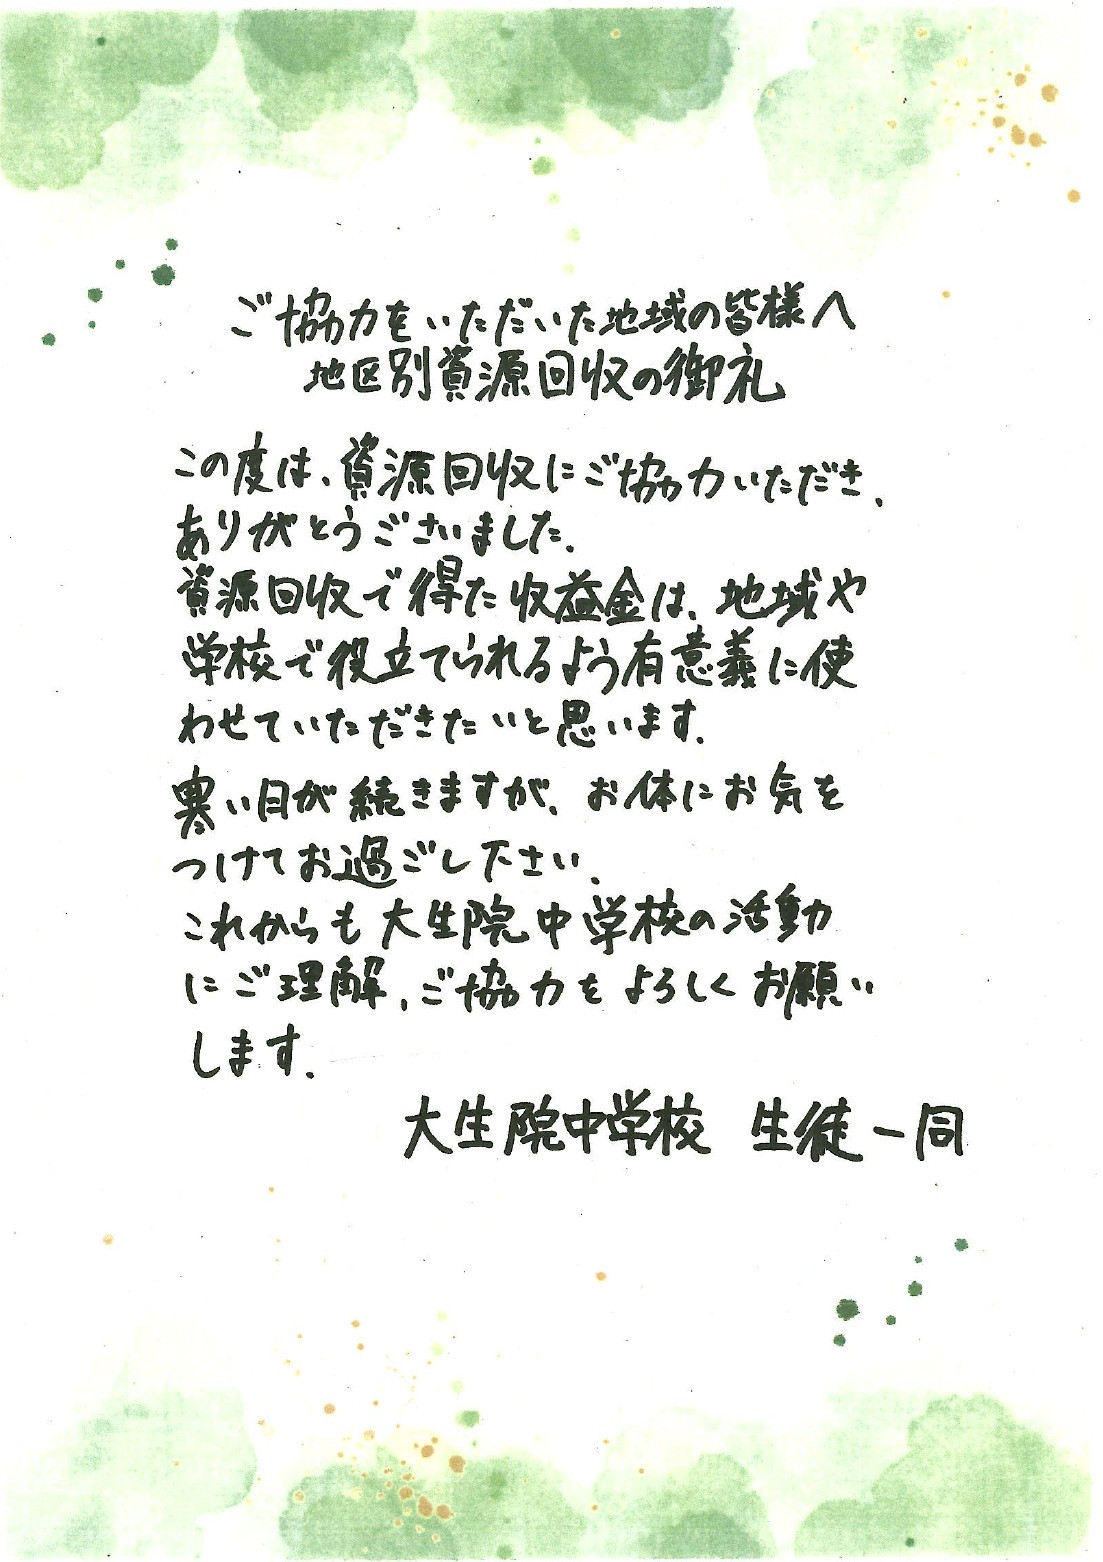 ご協力をいただいた地域の皆様へ
地区別資源回収の御礼
この度は、資源回収にご協力いただき、
ありがとうございました。
資源回収で得た収益金は、地域や
学校で役立てられるよう有意義に使
わせていただきたいと思います。
寒い日が続きますが、お体にお気を
つけてお過ごし下さい。
これからも大生院中学校の活動
にご理解、ご協力をよろしくお願い
します。
大生院中学校 生徒一同